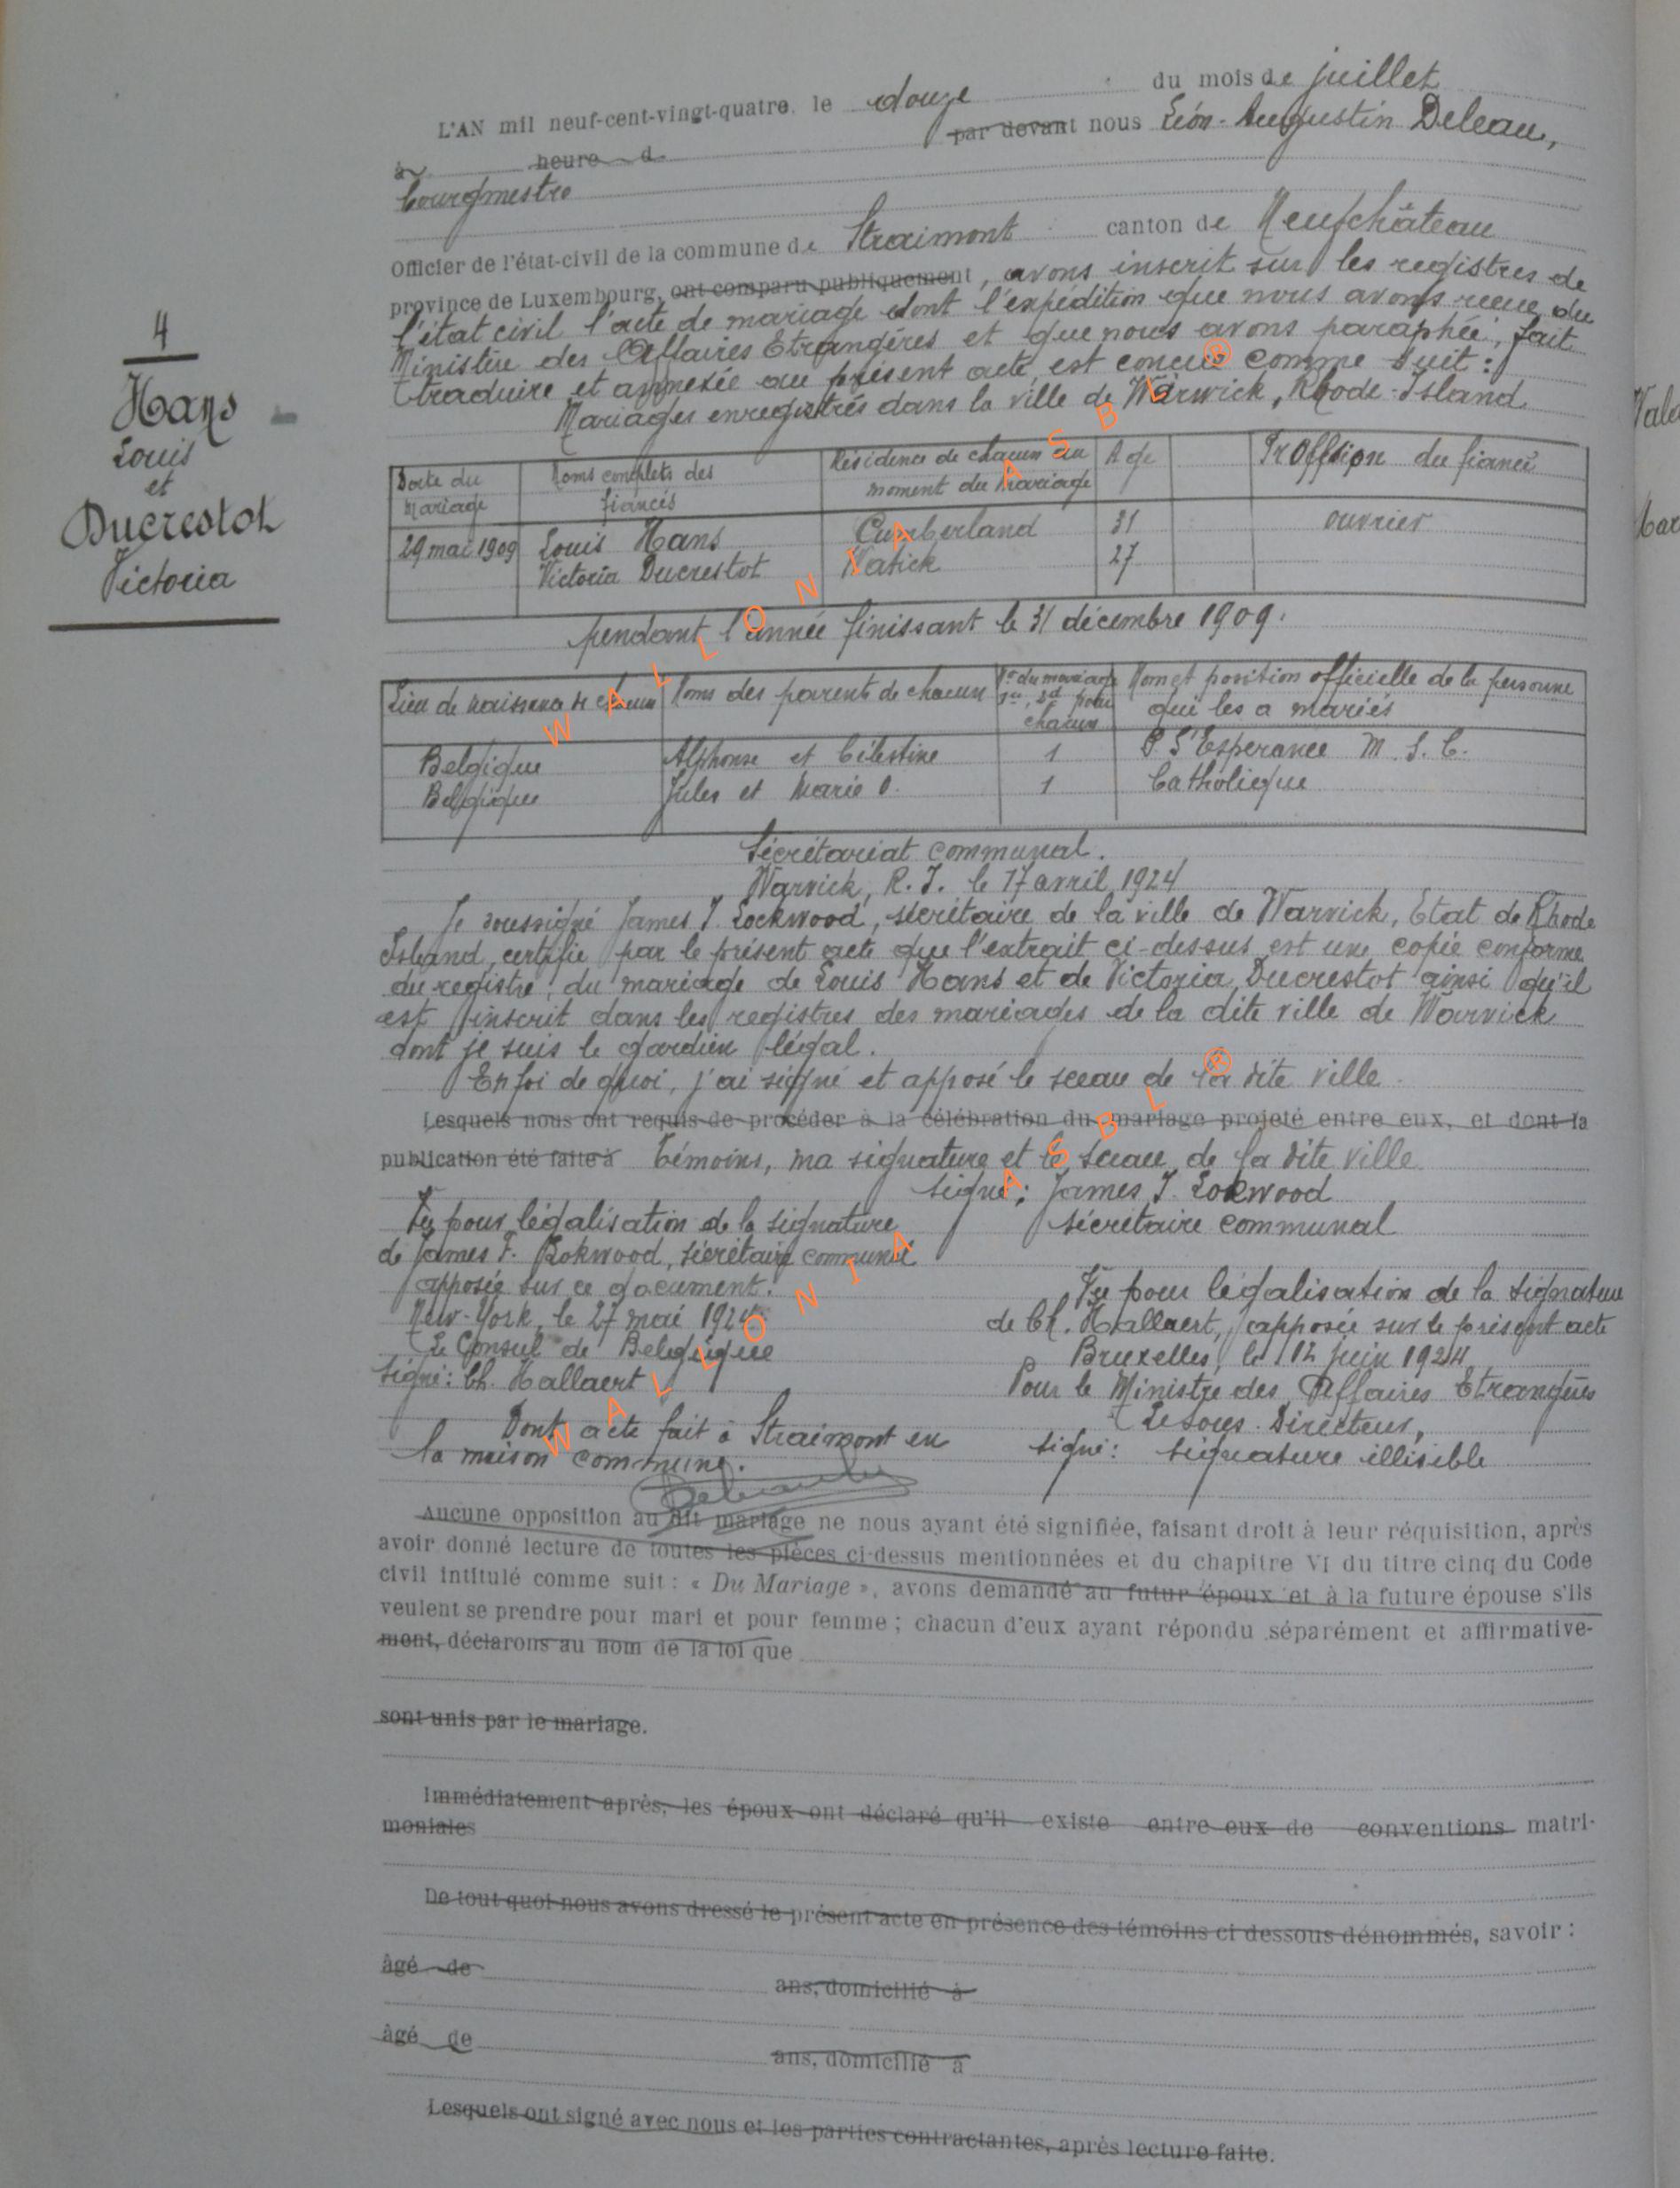 4
Hans
Louis
et
Ducrestot
Victoria
L'AN mil neuf-cent-vingt-quatre, le douze du mois de juillet
à heure d par devant nous Léon-Augustin Deleau,
bourgmestre
Officier de l'état-civil de la commune de Straimont canton de Neufchâteau
province de Luxembourg, ont comparu publiquement, avons inscrit sur les registres de
l'état civil l'acte de mariage dont l'expédition que nous avons reçue du
Ministère des Affaires Etrangères et que nous avons paraphée, fait
traduire et annexée au présent acte, est conçue comme suit :
Mariages enregistrés dans la ville de Warwick, Rhode-Island
Date du Mariage Noms complets des fiancés Résidence de chacun au moment du mariage Age Proffsion du fiancé
29 mai 1909 Louis Hans Cumberland 31 ouvrier
Victoria Ducrestot Natick 27
pendant l'année finissant le 31 décembre 1909.
Lieu de naissance de chacun Noms des parents de chacun No du mariage 1er, 2d pour chacun Nom et position officielle de la personne qui les a mariés
Belgique Alphonse et Célestine 1 P. L'Esperance M. S. C.
Belgique Jules et Marie O. 1 Catholique
Sécrétariat communal.
Warvick, R. I. le 17 avril 1924
Je soussigné James T. Lockwood, sécrétaire de la ville de Warvick, Etat de Rhode
Island, certifie par le présent acte que l'extrait ci-dessus est une copie conforme
du registre, du mariage de Louis Hans et de Victoria Ducrestot ainsi qu'il
est inscrit dans les registres des mariages de la dite ville de Warvick
dont je suis le gardien légal.
En foi de quoi, j'ai signé et apposé le sceau de la dite ville.
Lesquels nous ont requis de procéder à la célébration du mariage projeté entre eux, et dont la
publication été faite à Témoins, ma signature et le sceau de la dite ville
signé: James T. Lokwood
sécrétaire communal
Vu pour légalisation de la signature
de James F. Rokwood, sécrétaire communal
apposée sur ce document.
New-York, le 27 mai 1924.
Le Consul de Belgique
signé: Ch. Hallaert
Vu pour légalisation de la signature
de Ch. Hallaert, apposée sur le présent acte
Bruxelles, le 12 juin 1924
Pour le Ministre des Affaires Etrangères
Le sous-Directeur,
signé: signature illisible
Dont acte fait à Straimont en
la maison commune.
Aucune opposition au dit mariage ne nous ayant été signifiée, faisant droit à leur réquisition, après
avoir donné lecture de toutes les pièces ci-dessus mentionnées et du chapitre VI du titre cinq du Code
civil intitulé comme suit : « Du Mariage », avons demandé au futur époux et à la future épouse s'ils
veulent se prendre pour mari et pour femme ; chacun d'eux ayant répondu séparément et affirmative-
ment, déclarons au nom de la loi que
sont unis par le mariage.
Immédiatement après, les époux ont déclaré qu'il existe entre eux de conventions matri-
moniales
De tout quoi nous avons dressé le présent acte en présence des témoins ci dessous dénommés, savoir :
âgé de ans, domicilié à
âgé de ans, domicilié à
Lesquels ont signé avec nous et les parties contractantes, après lecture faite.
WALLONIA ASBL ®
WALLONIA ASBL ®